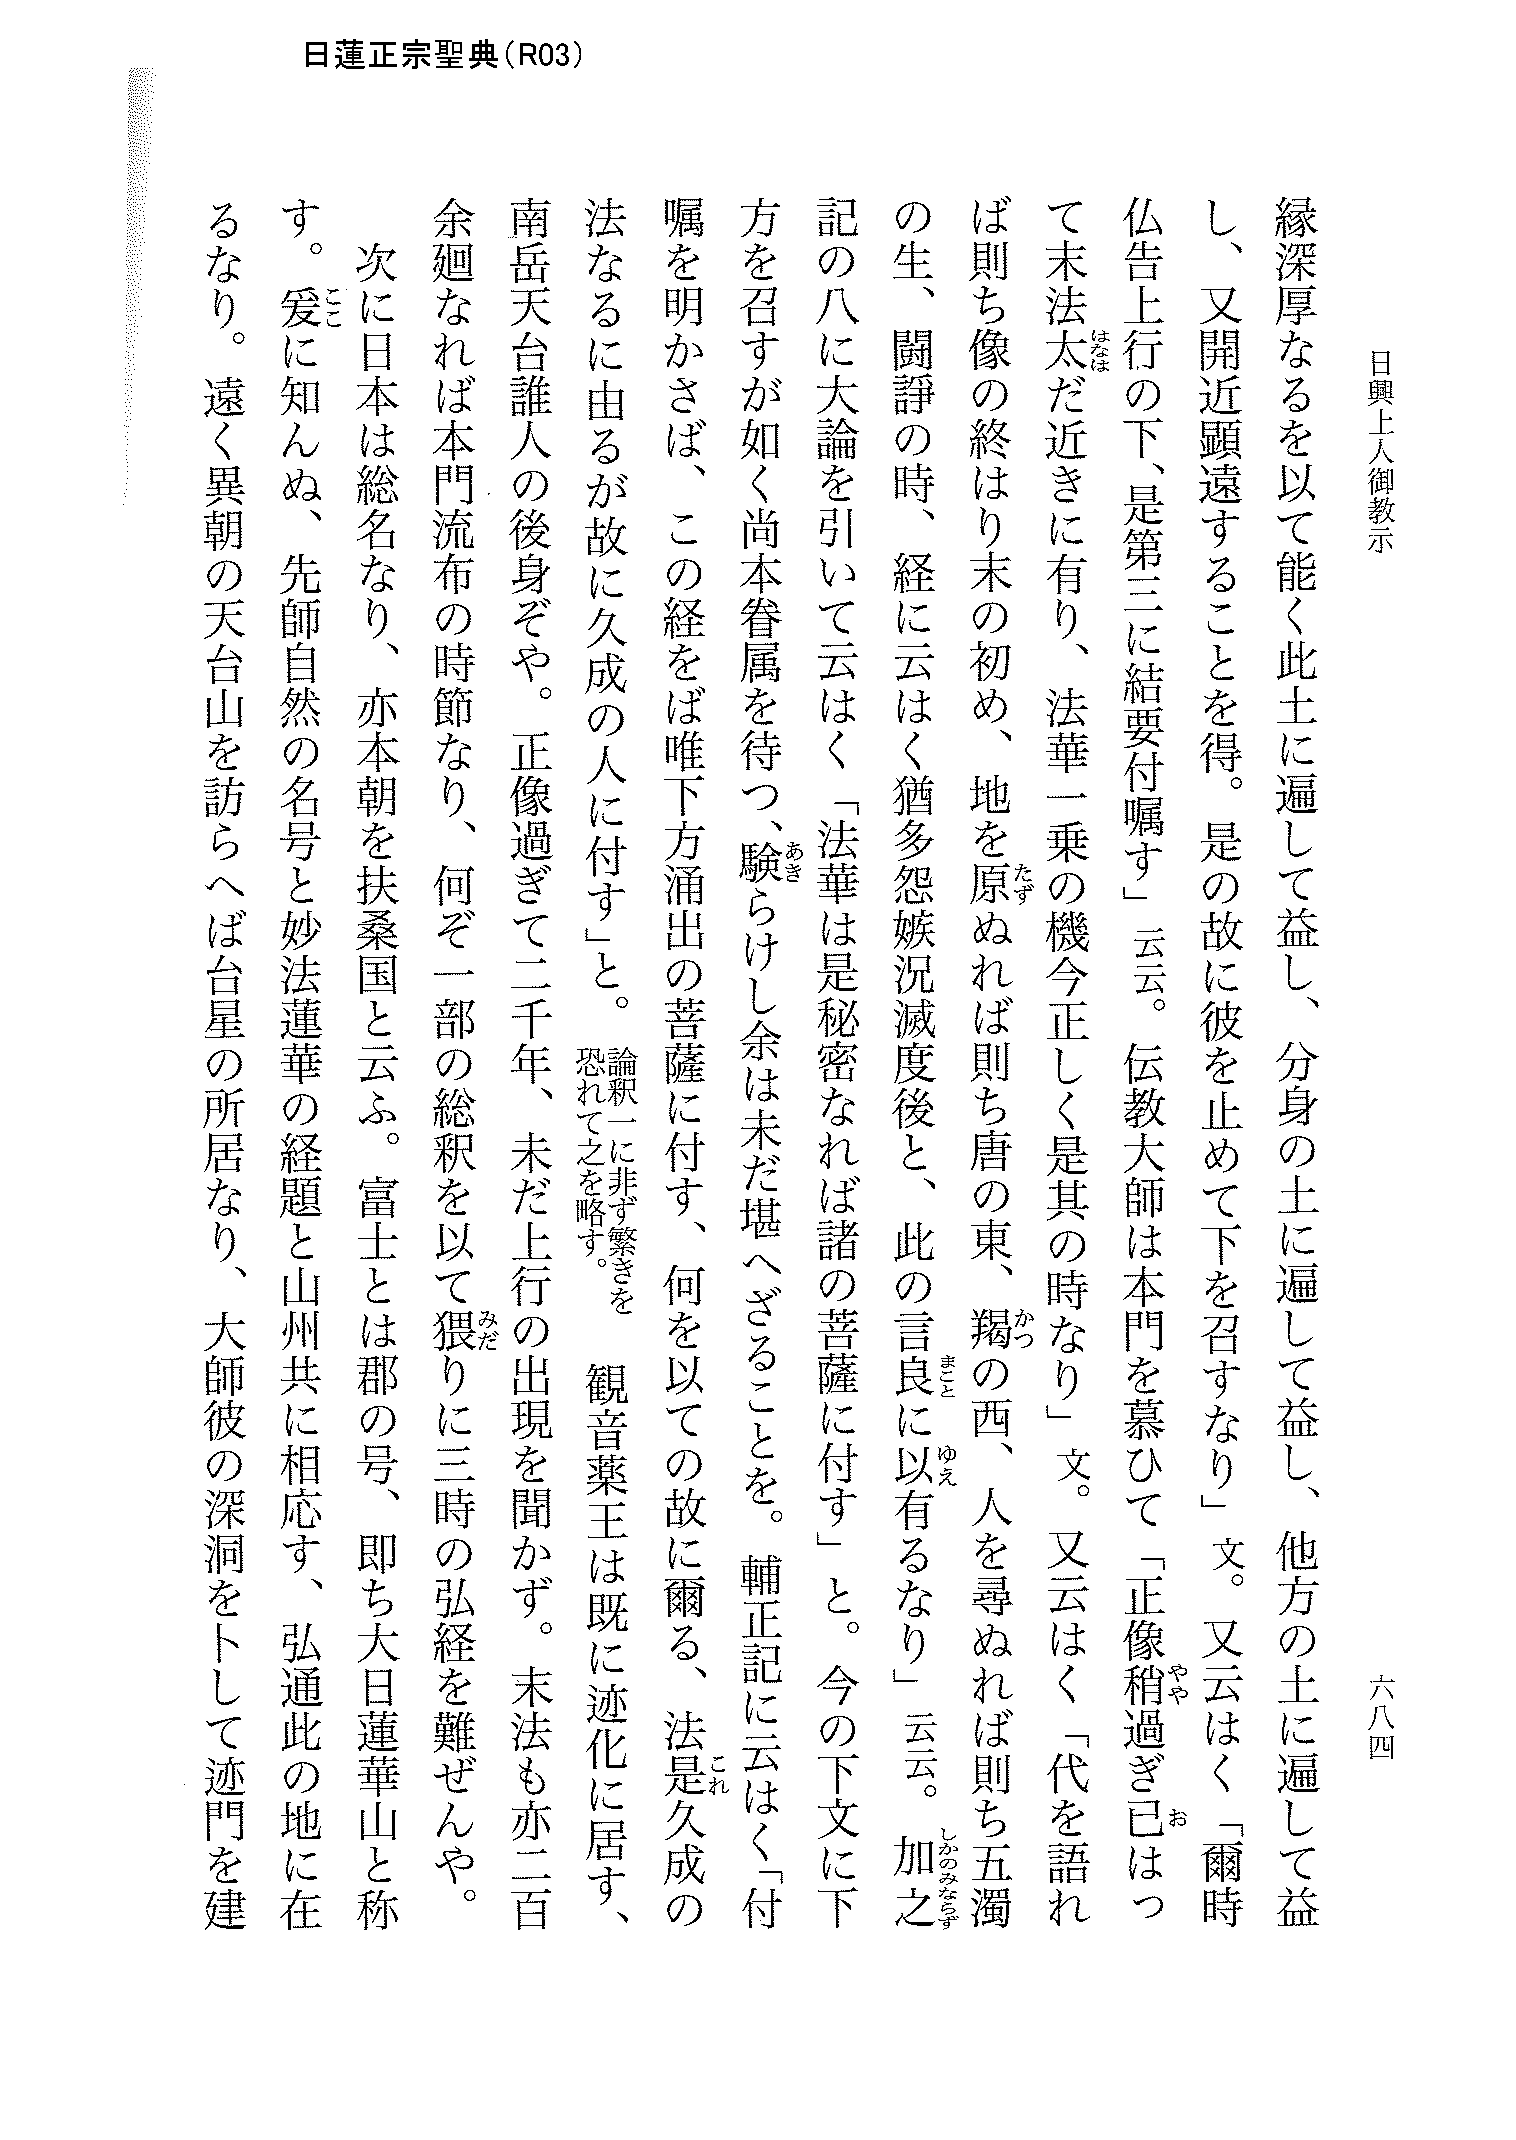 日蓮正宗聖典（R03）
日興上人御教示
六八四
縁深厚なるを以て能く此土に遍して益し、分身の土に遍して益し、他方の土に遍して益
し、又開近顕遠することを得。是の故に彼を止めて下を召すなり」文。又云はく「爾時
仏告上行の下、是第三に結要付嘱す」云云。伝教大師は本門を慕ひて「正像稍過ぎ已はっ
て末法太だ近きに有り、法華一乗の機今正しく是其の時なり」文。又云はく「代を語れ
ば則ち像の終はり末の初め、地を原ぬれば則ち唐の東、羯の西、人を尋ぬれば則ち五濁
の生、闘諍の時、経に云はく猶多怨嫉況滅度後と、此の言良に以有るなり」云云。加之
記の八に大論を引いて云はく「法華は是秘密なれば諸の菩薩に付す」と。今の下文に下
方を召すが如く尚本眷属を待つ、験らけし余は未だ堪へざることを。輔正記に云はく「付
嘱を明かさば、この経をば唯下方涌出の菩薩に付す、何を以ての故に爾る、法是久成の
法なるに由るが故に久成の人に付す」と。論釈一に非ず繁きを恐れて之を略す。観音薬王は既に迹化に居す、
南岳天台誰人の後身ぞや。正像過ぎて二千年、未だ上行の出現を聞かず。末法も亦二百
余廻なれば本門流布の時節なり、何ぞ一部の総釈を以て猥りに三時の弘経を難ぜんや。
次に日本は総名なり、亦本朝を扶桑国と云ふ。富士とは郡の号、即ち大日蓮華山と称
す。爰に知んぬ、先師自然の名号と妙法蓮華の経題と山州共に相応す、弘通此の地に在
るなり。遠く異朝の天台山を訪らへば台星の所居なり、大師彼の深洞を卜して迹門を建